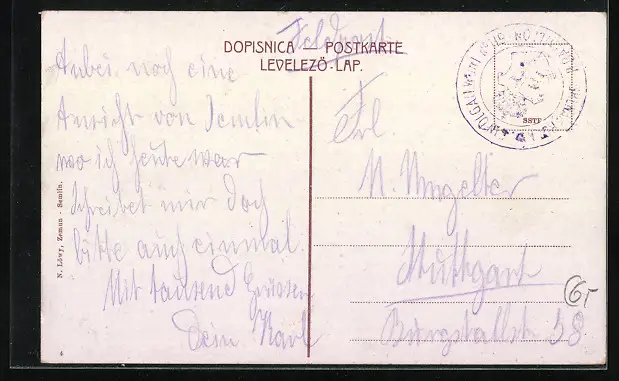 Feldpost
DOPISNICA — POSTKARTE
LEVELEZÖ-LAP.
Anbei noch eine
Ansicht von Semlin
wo ich heute war
schreibet mir doch
bitte auch einmal.
Mit tausend Grüssen
Dein Karl
Frl
M. Umgelter
Stuttgart
Burgstallstr 58
SSTP
N. Löwy, Zemun - Semlin.
4